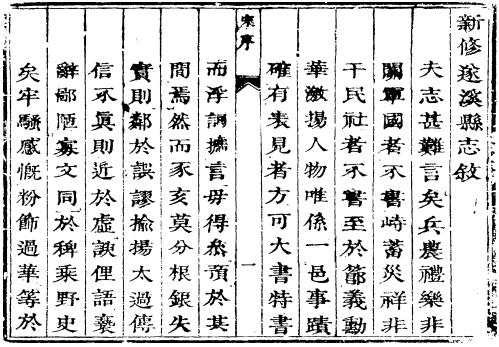 新修遂溪縣志敘
夫志甚難言矣兵農禮樂非
關軍國者不書崎蓄災祥非
干民社者不書至於節義動
華激揚人物唯係一邑事蹟
確有表見者方可大書特書
宋序 一
而浮詞摭言毋得叅預於其
間焉然而豕亥莫分根銀失
實則鄰於誤謬揄揚太過傳
信不眞則近於虛諛俚語褻
辭鄙陋寡文同於稗乘野史
矣牢騷感慨粉飾過華等於